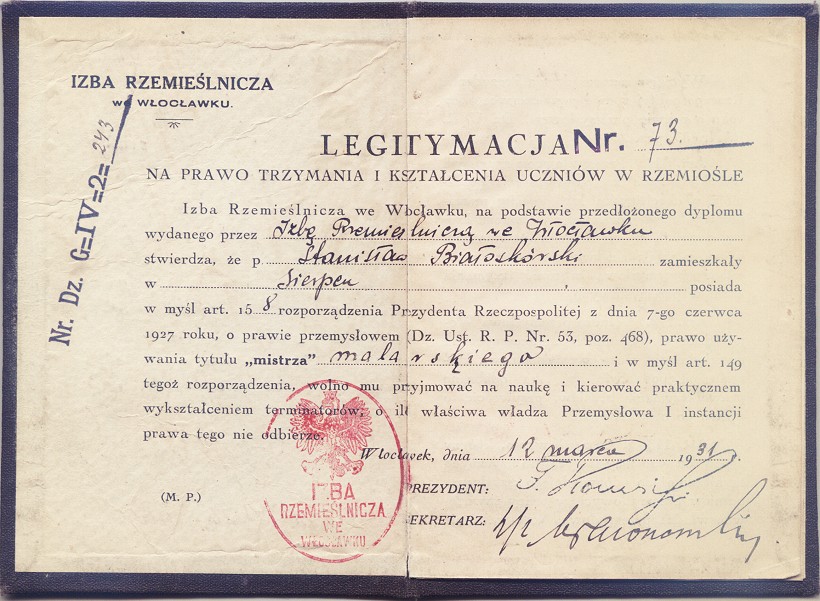 IZBA RZEMIEŚLNICZA
we WŁOCŁAWKU.
Nr. Dz. G=IV=2= 243
LEGITYMACJA Nr. 73.
NA PRAWO TRZYMANIA I KSZTAŁCENIA UCZNIÓW W RZEMIOŚLE
Izba Rzemieślnicza we Włocławku, na podstawie przedłożonego dyplomu
wydanego przez Izbę Rzemieślniczą we Włocławku
stwierdza, że p. Stanisław Białoskórski zamieszkały
w Sierpcu posiada
w myśl art. 158 rozporządzenia Prezydenta Rzeczpospolitej z dnia 7-go czerwca
1927 roku, o prawie przemysłowem (Dz. Ust. R. P. Nr. 53, poz. 468), prawo uży-
wania tytułu „mistrza” malarskiego i w myśl art. 149
tegoż rozporządzenia, wolno mu przyjmować na naukę i kierować praktycznem
wykształceniem terminatorów, o ile właściwa władza Przemysłowa I instancji
prawa tego nie odbierze.
Włocławek, dnia 12 marca 1931 r.
(M. P.)
PREZYDENT:
SEKRETARZ:
IZBA
RZEMIEŚLNICZA
WE
WŁOCŁAWKU